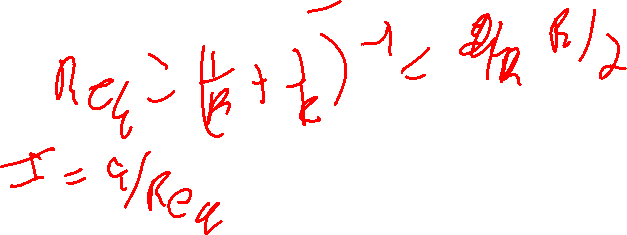 Req = (1/R + 1/R)^-1 = R/2
I = /Req